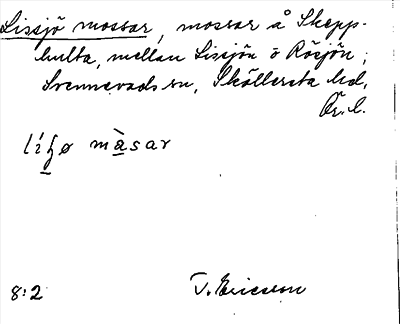 Lissjö mossar, mossar å Skepp-
hulta, mellan Lissjön o Rösjön,
Svennevads sn, Sköllersta hd,
Ör. l.
8:2 T. Ericsson